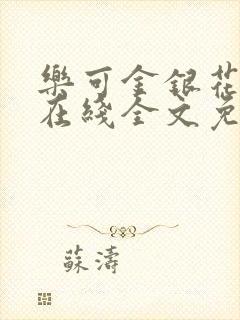 樂可金銀花
在綫全文免
蘇濤